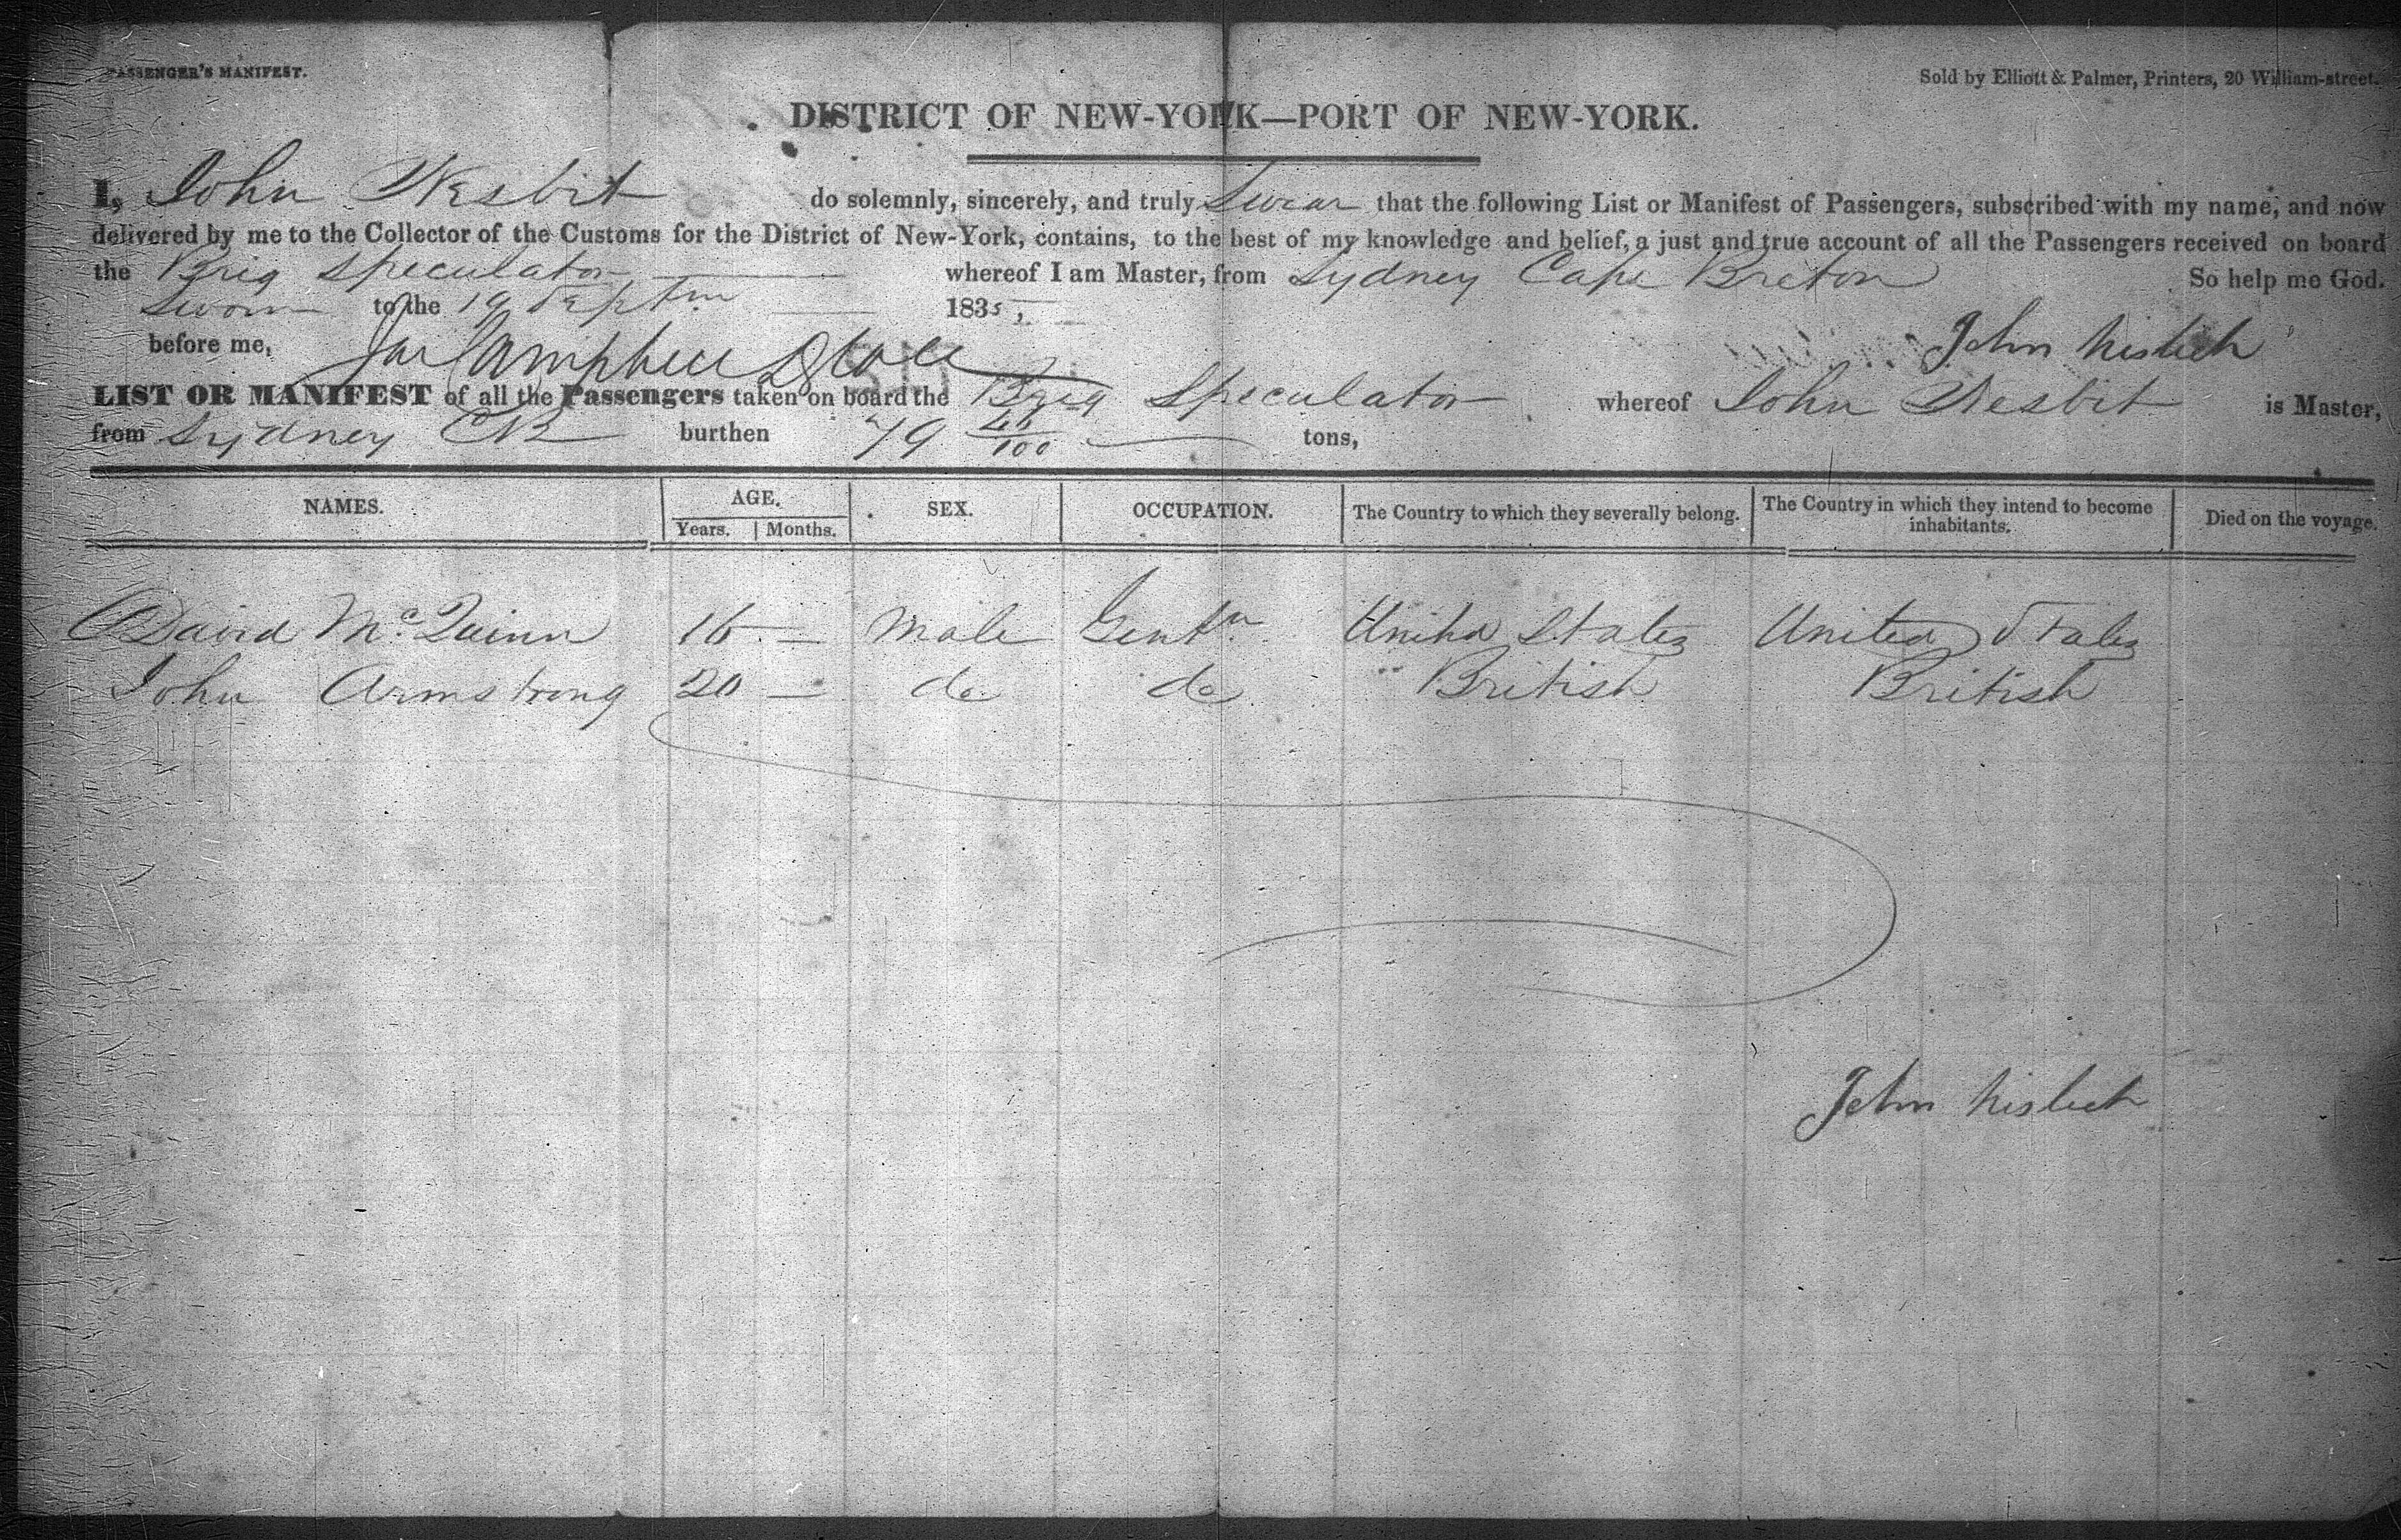 PASSENGER'S MANIFEST.
Sold by Elliott & Palmer, Printers, 20 William-street.
DISTRICT OF NEW-YORK—PORT OF NEW-YORK.
I, John Nesbit do solemnly, sincerely, and truly Swear that the following List or Manifest of Passengers, subscribed with my name, and now
delivered by me to the Collector of the Customs for the District of New-York, contains, to the best of my knowledge and belief, a just and true account of all the Passengers received on board
the Brig Speculator whereof I am Master, from Sydney Cape Breton So help me God.
Sworn to the 19 Septm 1835,
before me, Campbell John Nisbet
LIST OR MANIFEST of all the Passengers taken on board the Brig Speculator whereof John Nesbit is Master,
from Sydney CB burthen 79 46/100 tons,
NAMES. AGE. SEX. OCCUPATION. The Country to which they severally belong. The Country in which they intend to become inhabitants. Died on the voyage.
Years. Months.
David McQuinn 16 — Male Gentn United States United States
John Armstrong 20 — do do British British
John Nisbet